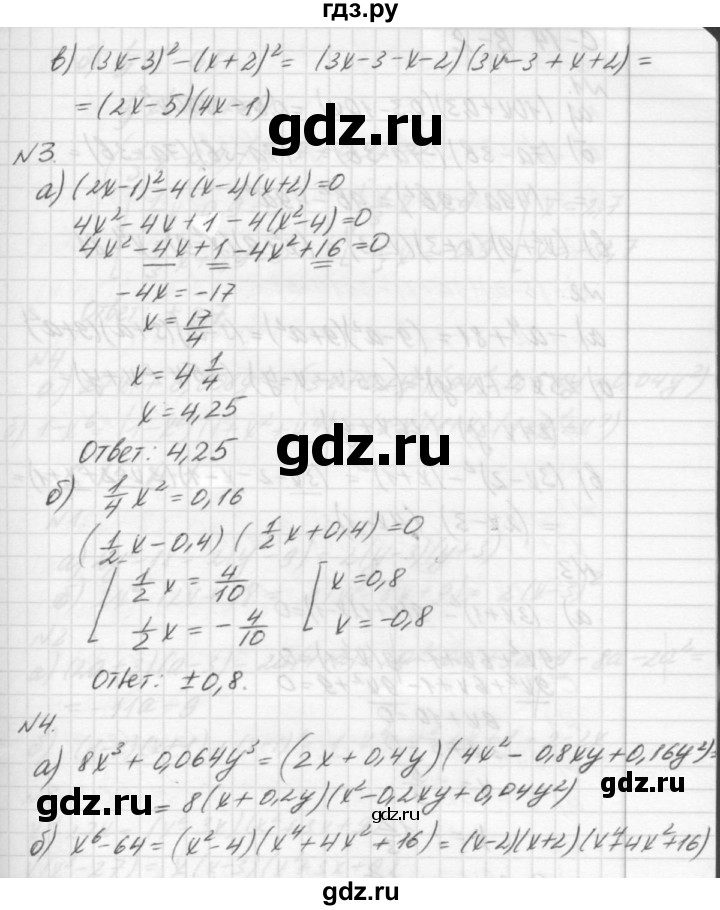 гдз.ру
в) (3x-3)² - (x+2)² = (3x-3-x-2)(3x-3+x+2) =
= (2x-5)(4x-1)
gdz.ru
№3.
а) (2x-1)² - 4(x-2)(x+2) = 0
4x² - 4x + 1 - 4(x²-4) = 0
4x² - 4x + 1 - 4x² + 16 = 0
-4x = -17
x = 17/4
x = 4 1/4
x = 4,25
Ответ: 4,25
gdz.ru
б) 1/4 x² = 0,16
(1/2 x - 0,4)(1/2 x + 0,4) = 0
[ 1/2 x = 4/10 [ x = 0,8
1/2 x = - 4/10 x = -0,8
Ответ: ±0,8.
№4.
а) 8x³ + 0,064y³ = (2x + 0,4y)(4x² - 0,8xy + 0,16y²) =
= 8(x + 0,2y)(x² - 0,2xy + 0,04y²)
gdz.ru
gdz.ru
gdz.ru
б) x⁶ - 64 = (x² - 4)(x⁴ + 4x² + 16) = (x-2)(x+2)(x⁴+4x²+16)
gdz.ru